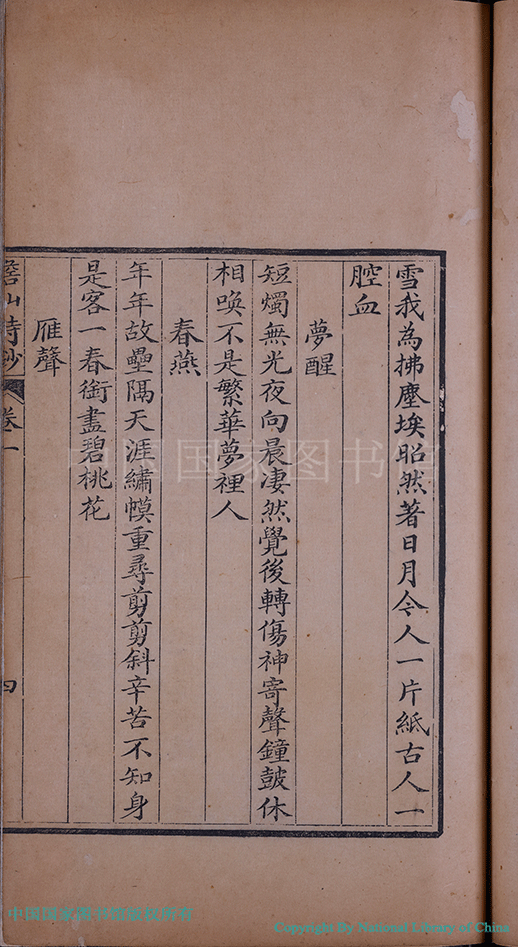 雪我為拂塵埃昭然著日月今人一片紙古人一
腔血
夢醒
短燭無光夜向晨淒然覺後轉傷神寄聲鐘鼓休
相喚不是繁華夢裡人
春燕
年年故壘隔天涯繡幙重尋剪剪斜辛苦不知身
是客一春銜盡碧桃花
雁聲
山詩鈔 卷一 四
中国国家图书馆
中国国家图书馆版权所有
Copyright By National Library of China